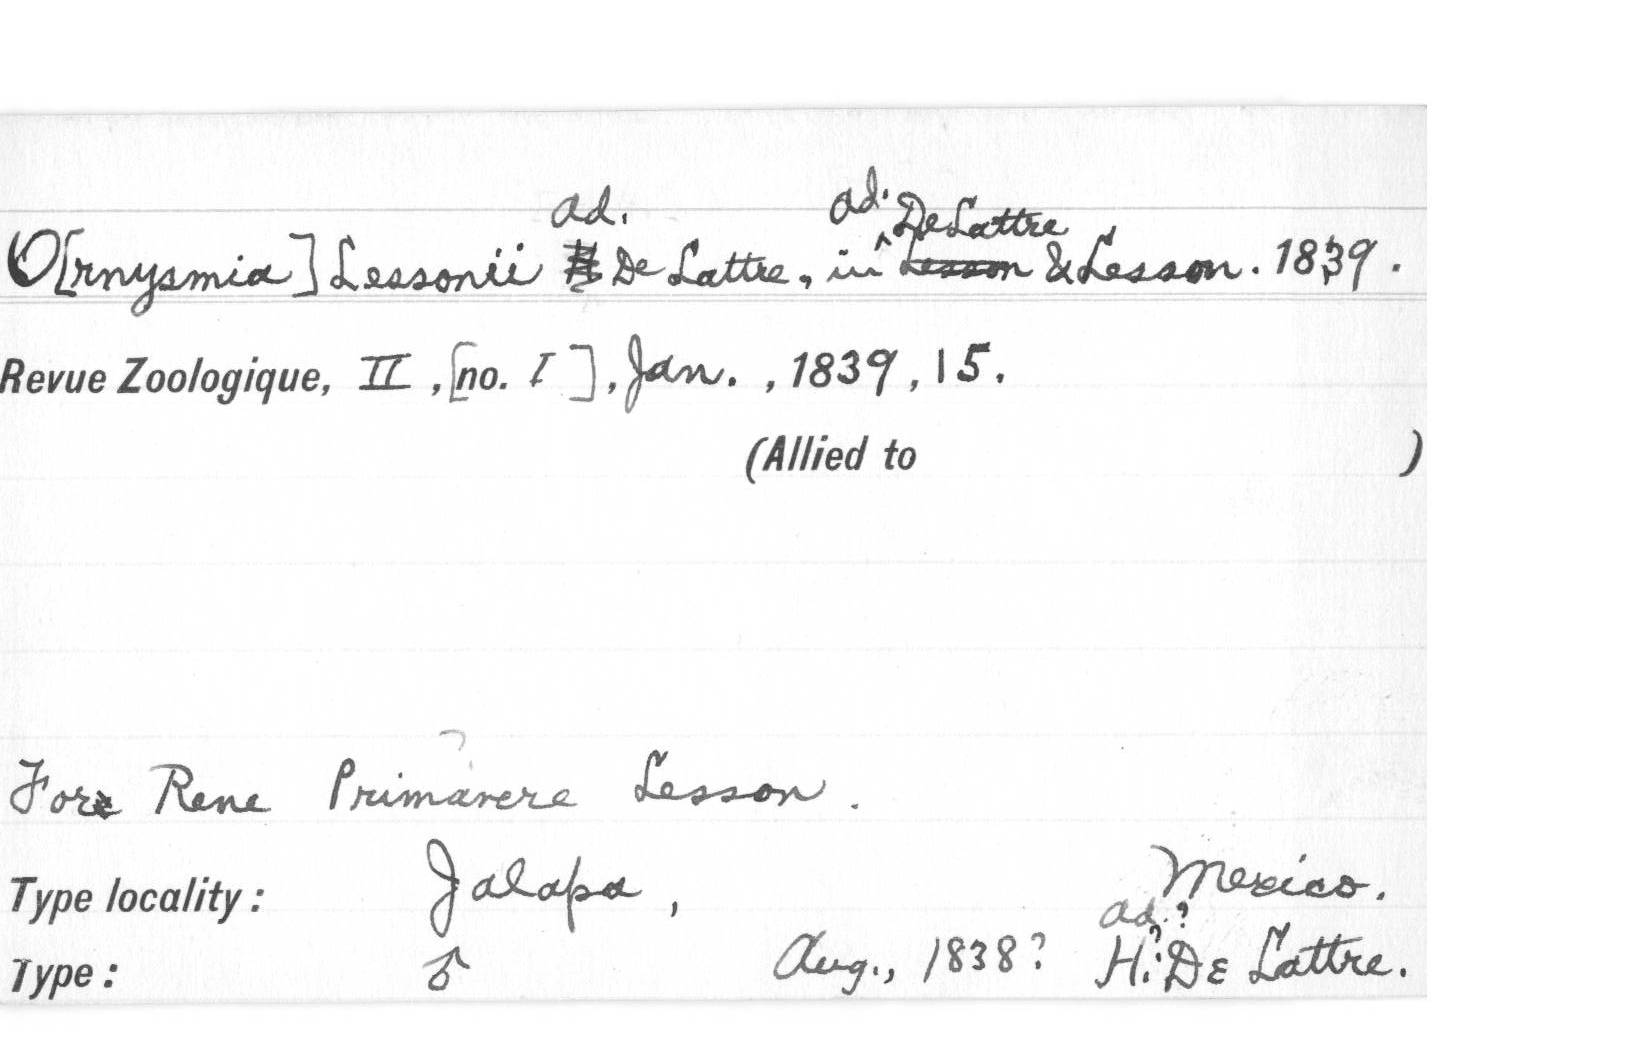 ad. ad. DeLattre
O[rnysmia] Lessonii De Lattre, in ^ Lesson & Lesson. 1839.
Revue Zoologique, II, [no. I], Jan., 1839, 15.
(Allied to )
For Rene Primavere Lesson.
Type locality: Jalapa, Mexico.
ad.?
Type: ♂ Aug., 1838? H.? De Lattre.